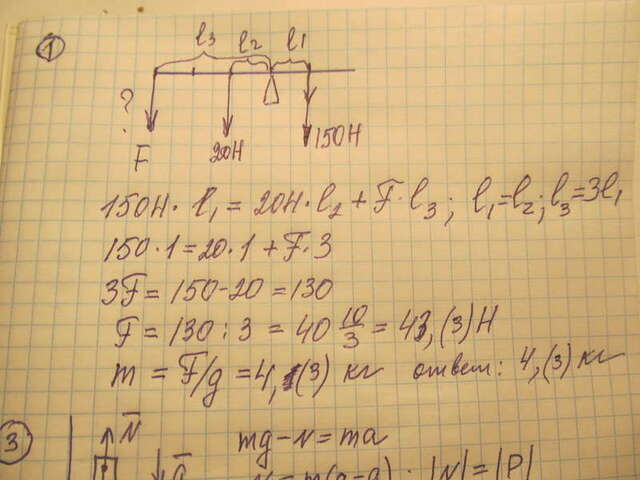 1
l3 l2 l1
?
F 20Н 150Н
150Н · l₁ = 20Н · l₂ + F · l₃ ; l₁=l₂; l₃=3l₁
150·1=20·1+F·3
3F = 150-20 = 130
F = 130 : 3 = 40 10/3 = 43,(3) Н
m = F/g = 4,(3) кг ответ: 4,(3) кг
3 N̄ mg-N=ma
N = m(g-a) ; |N|=|P|